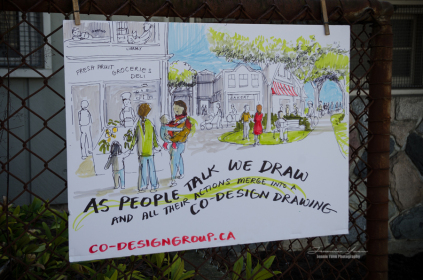 FRESH FRUIT GROCERIES
DELI
BAKERY
AS PEOPLE TALK WE DRAW
AND ALL THEIR ACTIONS MERGE INTO A
CO-DESIGN DRAWING
CO-DESIGNGROUP.CA